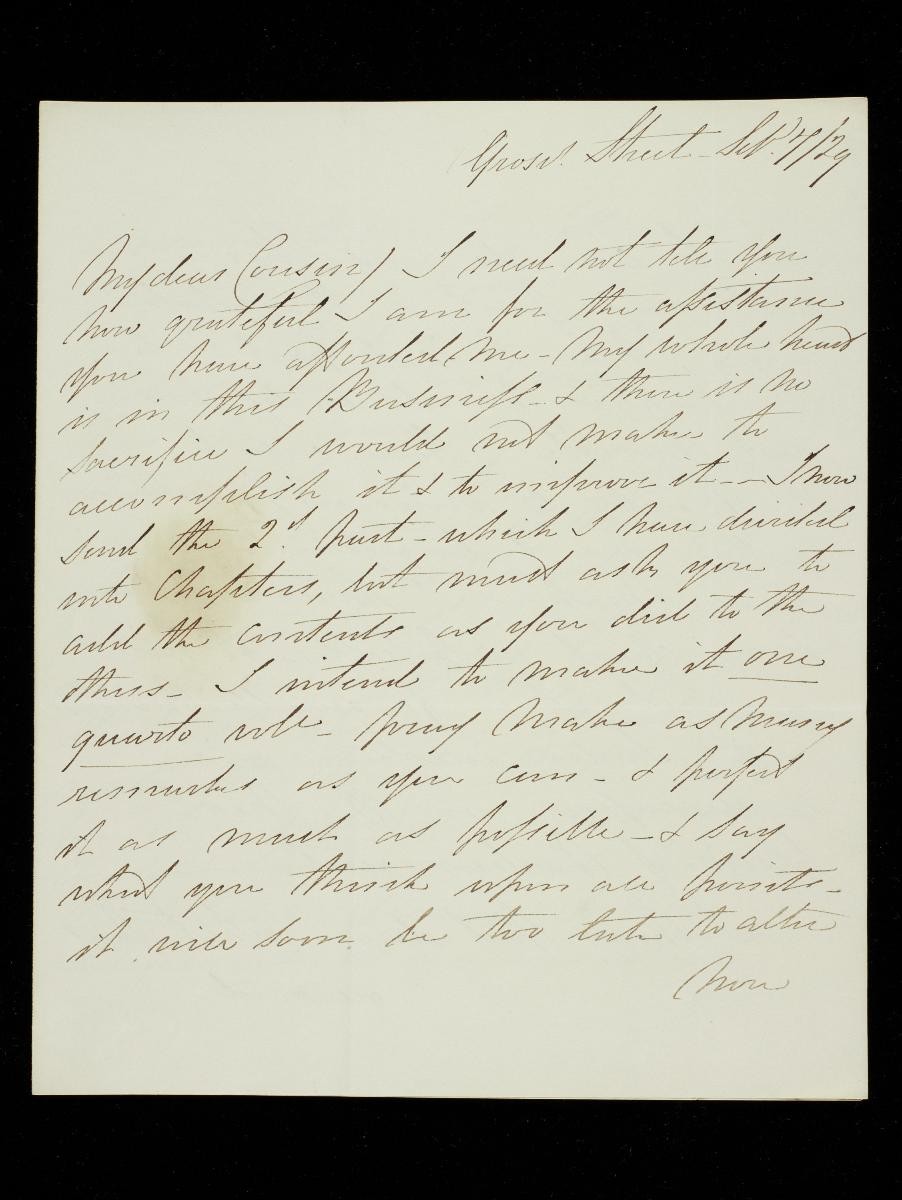 Grosv. Street - Sept. 7/29
My dear Cousin / I need not tell you
how grateful I am for the assistance
you have afforded me - My whole heart
is in this Business - & there is no
sacrifice I would not make to
accomplish it & to improve it -- I now
send the 2d. part - which I have divided
into Chapters, but must ask you to
add the contents as you did to the
others - I intend to make it one
quarto vole - pray make as many
remarks as you can - & perfect
it as much as possible - & say
what you think upon all points -
it will soon be too late to alter
Now